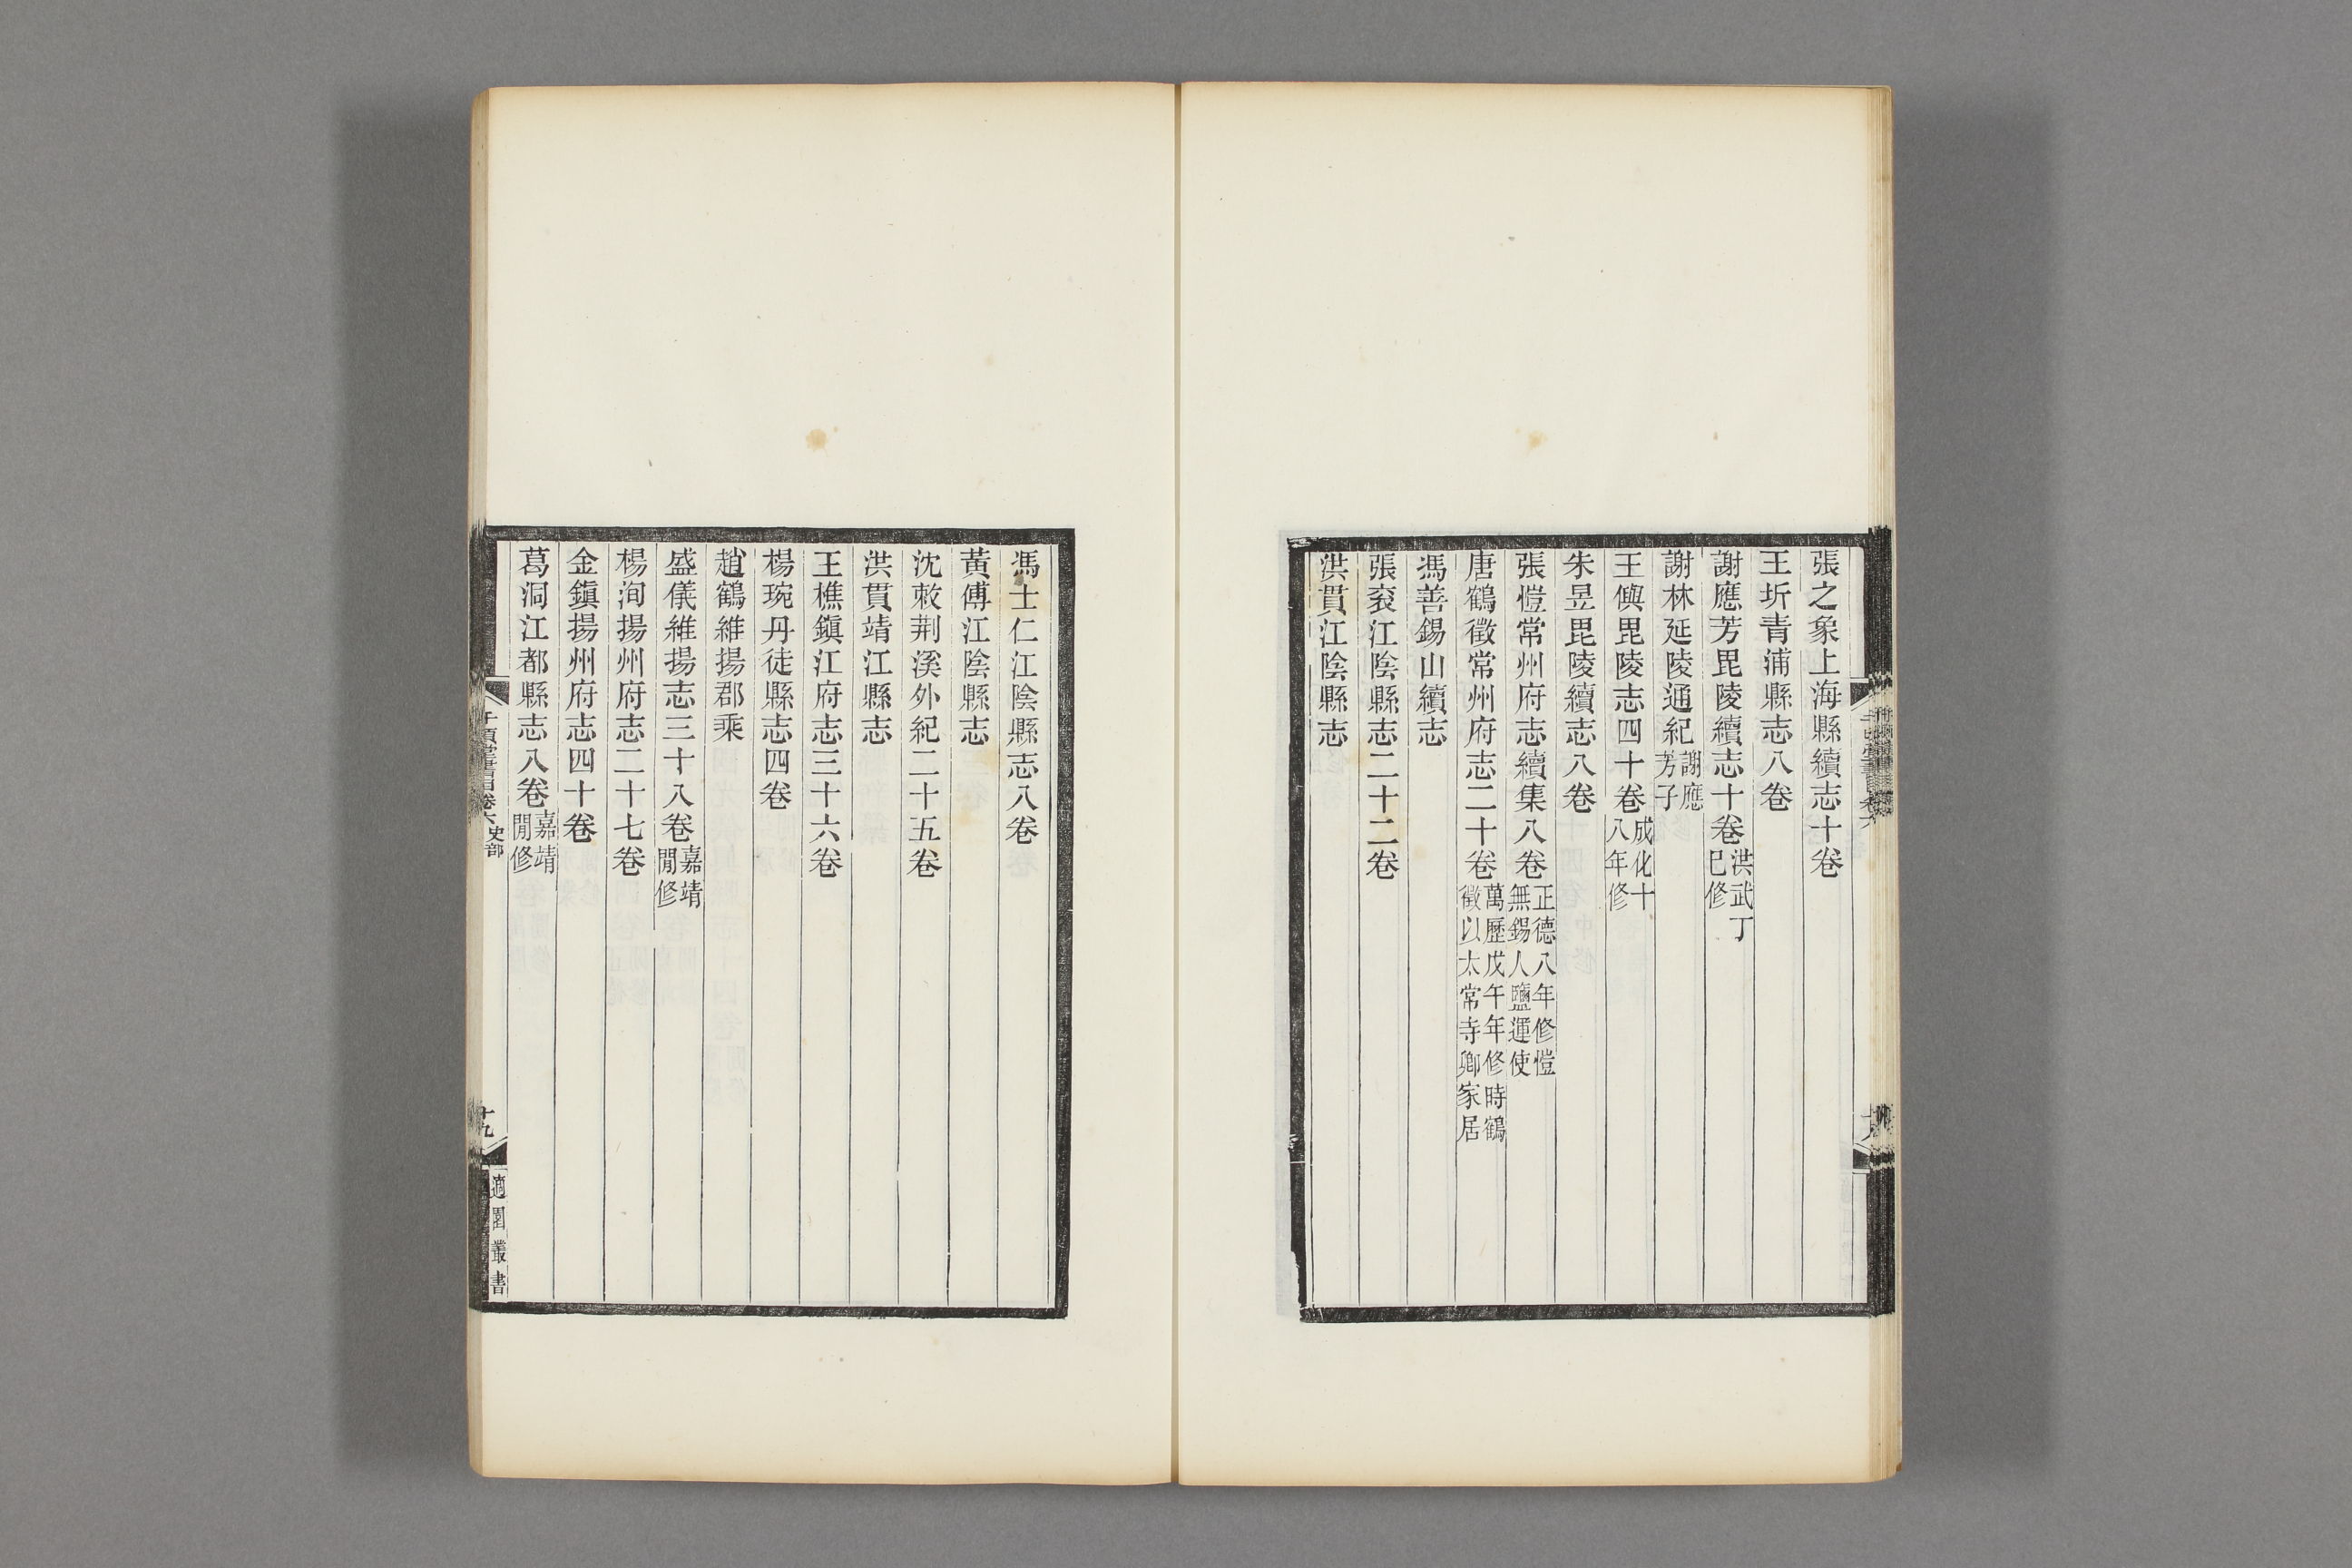 張之象上海縣續志十卷
王圻青浦縣志八卷
謝應芳毘陵續志十卷洪武丁巳修
謝林延陵通紀謝應芳子
王㒜毘陵志四十卷成化十八年修
朱昱毘陵續志八卷
張愷常州府志續集八卷正德八年修愷無錫人鹽運使
唐鶴徵常州府志二十卷萬歷戊午年修時鶴徵以太常寺卿家居
馮善錫山續志
張袞江陰縣志二十二卷
洪貫江陰縣志
馮士仁江陰縣志八卷
黃傅江陰縣志
沈敕荆溪外紀二十五卷
洪貫靖江縣志
王樵鎭江府志三十六卷
楊琬丹徒縣志四卷
趙鶴維揚郡乘
盛儀維揚志三十八卷嘉靖閒修
楊洵揚州府志二十七卷
金鎭揚州府志四十卷
葛洞江都縣志八卷嘉靖閒修
千頃堂書目卷六史部
十九
適園叢書